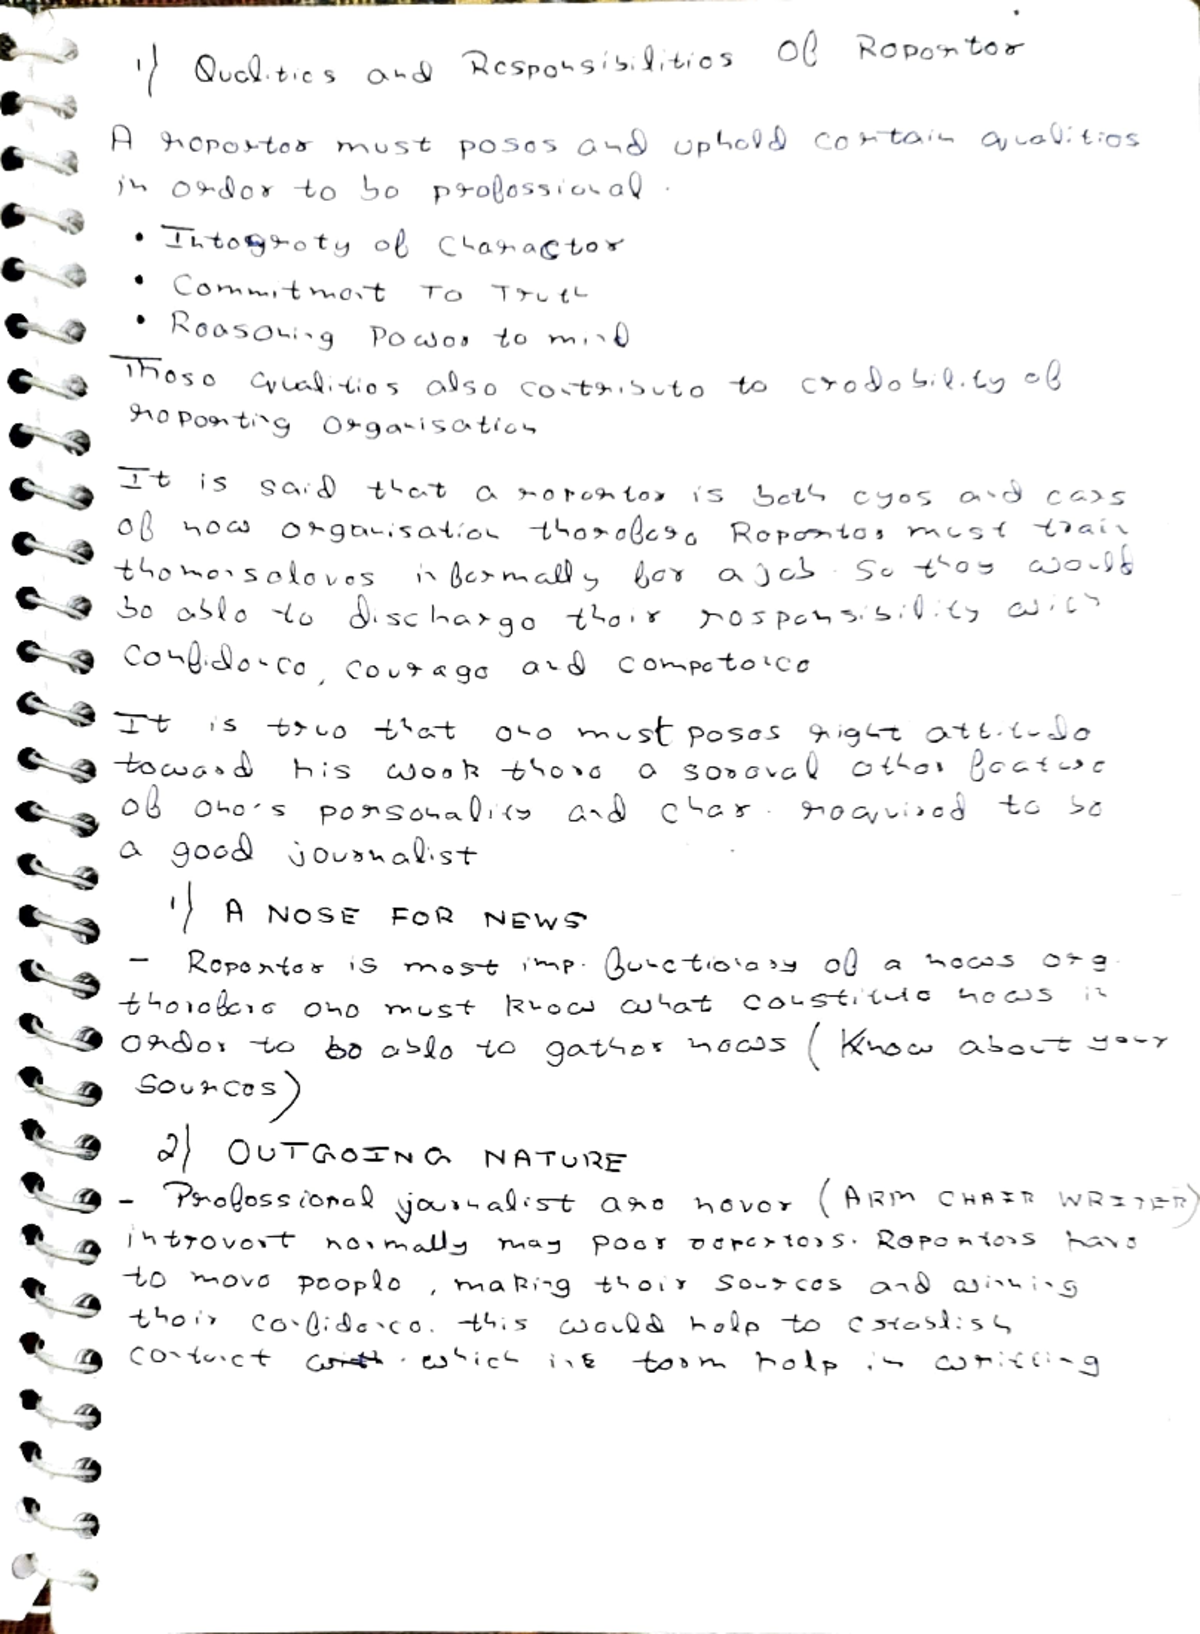 1) Qualities and Responsibilities Of Reporter
A reporter must poses and uphold certain qualities
in order to be professional.
• Integrety of Character
• Commitment To Truth
• Reasoning Power to mind
These qualities also contribute to credebility of
reporting organisation
It is said that a reporter is both eyes and ears
of news organisation therefore Reporter must train
themselves informally for a job. So they would
be able to discharge their responsibility with
confidence, courage and competence
It is true that one must poses right attitude
toward his work there a several other feature
of one's personality and char. required to be
a good journalist
1) A NOSE FOR NEWS
- Reporter is most imp. functionary of a news org.
therefore one must know what constitute news in
order to be able to gather news (Know about your
Sources)
2) OUTGOING NATURE
- Professional journalist are never (ARM CHAIR WRITER)
introvert normally may poor reporters. Reporters have
to move people, making their sources and winning
their confidence. this would help to establish
contact which in term help in writting